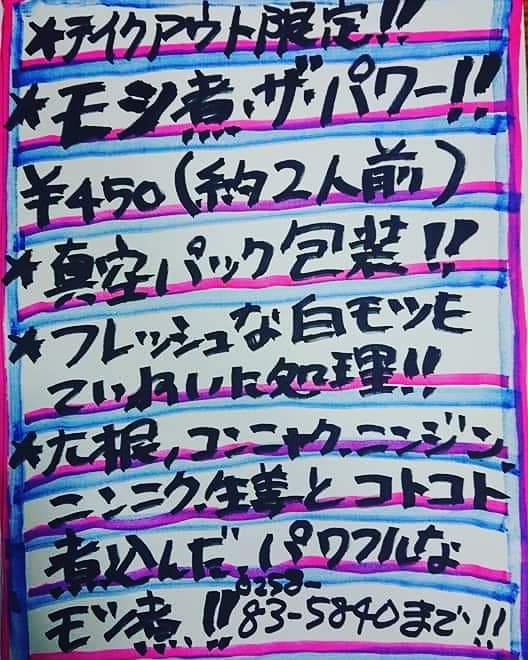 *テイクアウト限定!!
*モツ煮.ザ.パワー!!
¥450(約2人前)
*真空パック包装!!
*フレッシュな白モツを
ていねいに処理!!
*大根、コンニャク、ニンジン、
ニンニク、生姜とコトコト
煮込んだ、パワフルな
モツ煮!!0258-
83-5840まで!!